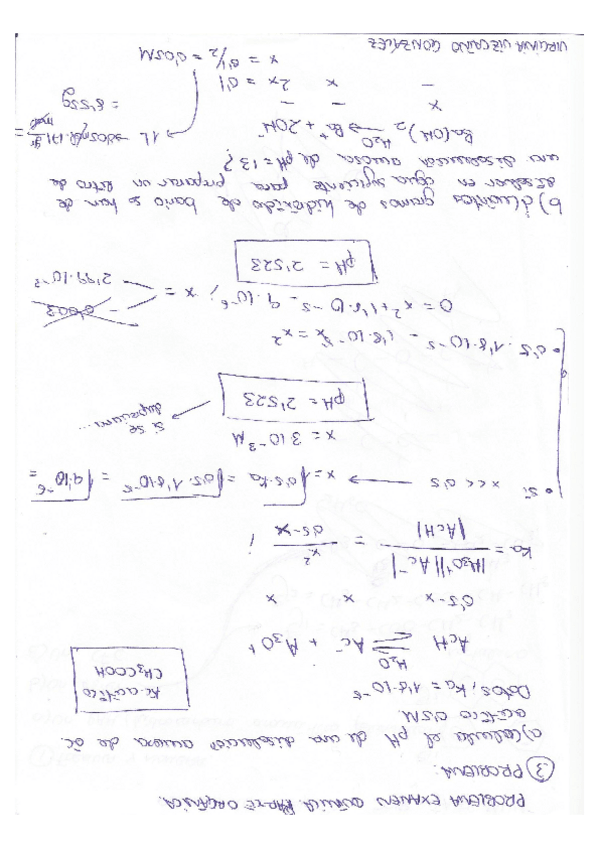 PROBLEMA EXAMEN QUÍMICA. PARTE ORGÁNICA.
③ PROBLEMA:
a) Calcular el pH de una disolución acuosa de ác.
acético 0,5M.
Datos; Ka = 1'8·10⁻⁵
Ác. acético
CH₃COOH
AcH ⇌ Ac⁻ + H₃O⁺
H₂O
0'5-x x x
Ka = |H₃O⁺||Ac⁻| / |AcH| = x² / 0'5-x ;
• Si x<<0'5 → x = √0'5·Ka = √0'5·1'8·10⁻⁵ = √9·10⁻⁶ =
x = 3·10⁻³ M
pH = 2'523 → si se
• 0'5·1'8·10⁻⁵ - 1'8·10⁻⁵x = x²
0 = x² + 1'8·10⁻⁵ - 9·10⁻⁶ ; x =
- 0'003
2'99·10⁻³
pH = 2'523
b) ¿Cuántos gramos de hidróxido de bario se han de
disolver en agua suficiente para preparar un litro de
una disolución acuosa de pH = 13?
Ba(OH)₂ → Ba⁺ + 2OH⁻
H₂O
x - -
- x 2x = 0'1
x = 0'1/2 = 0,05M
→ 1L → 0'05mol · 171 g/mol =
= 8'55g
VIRGINIA VIZCAÍNO GONZÁLEZ